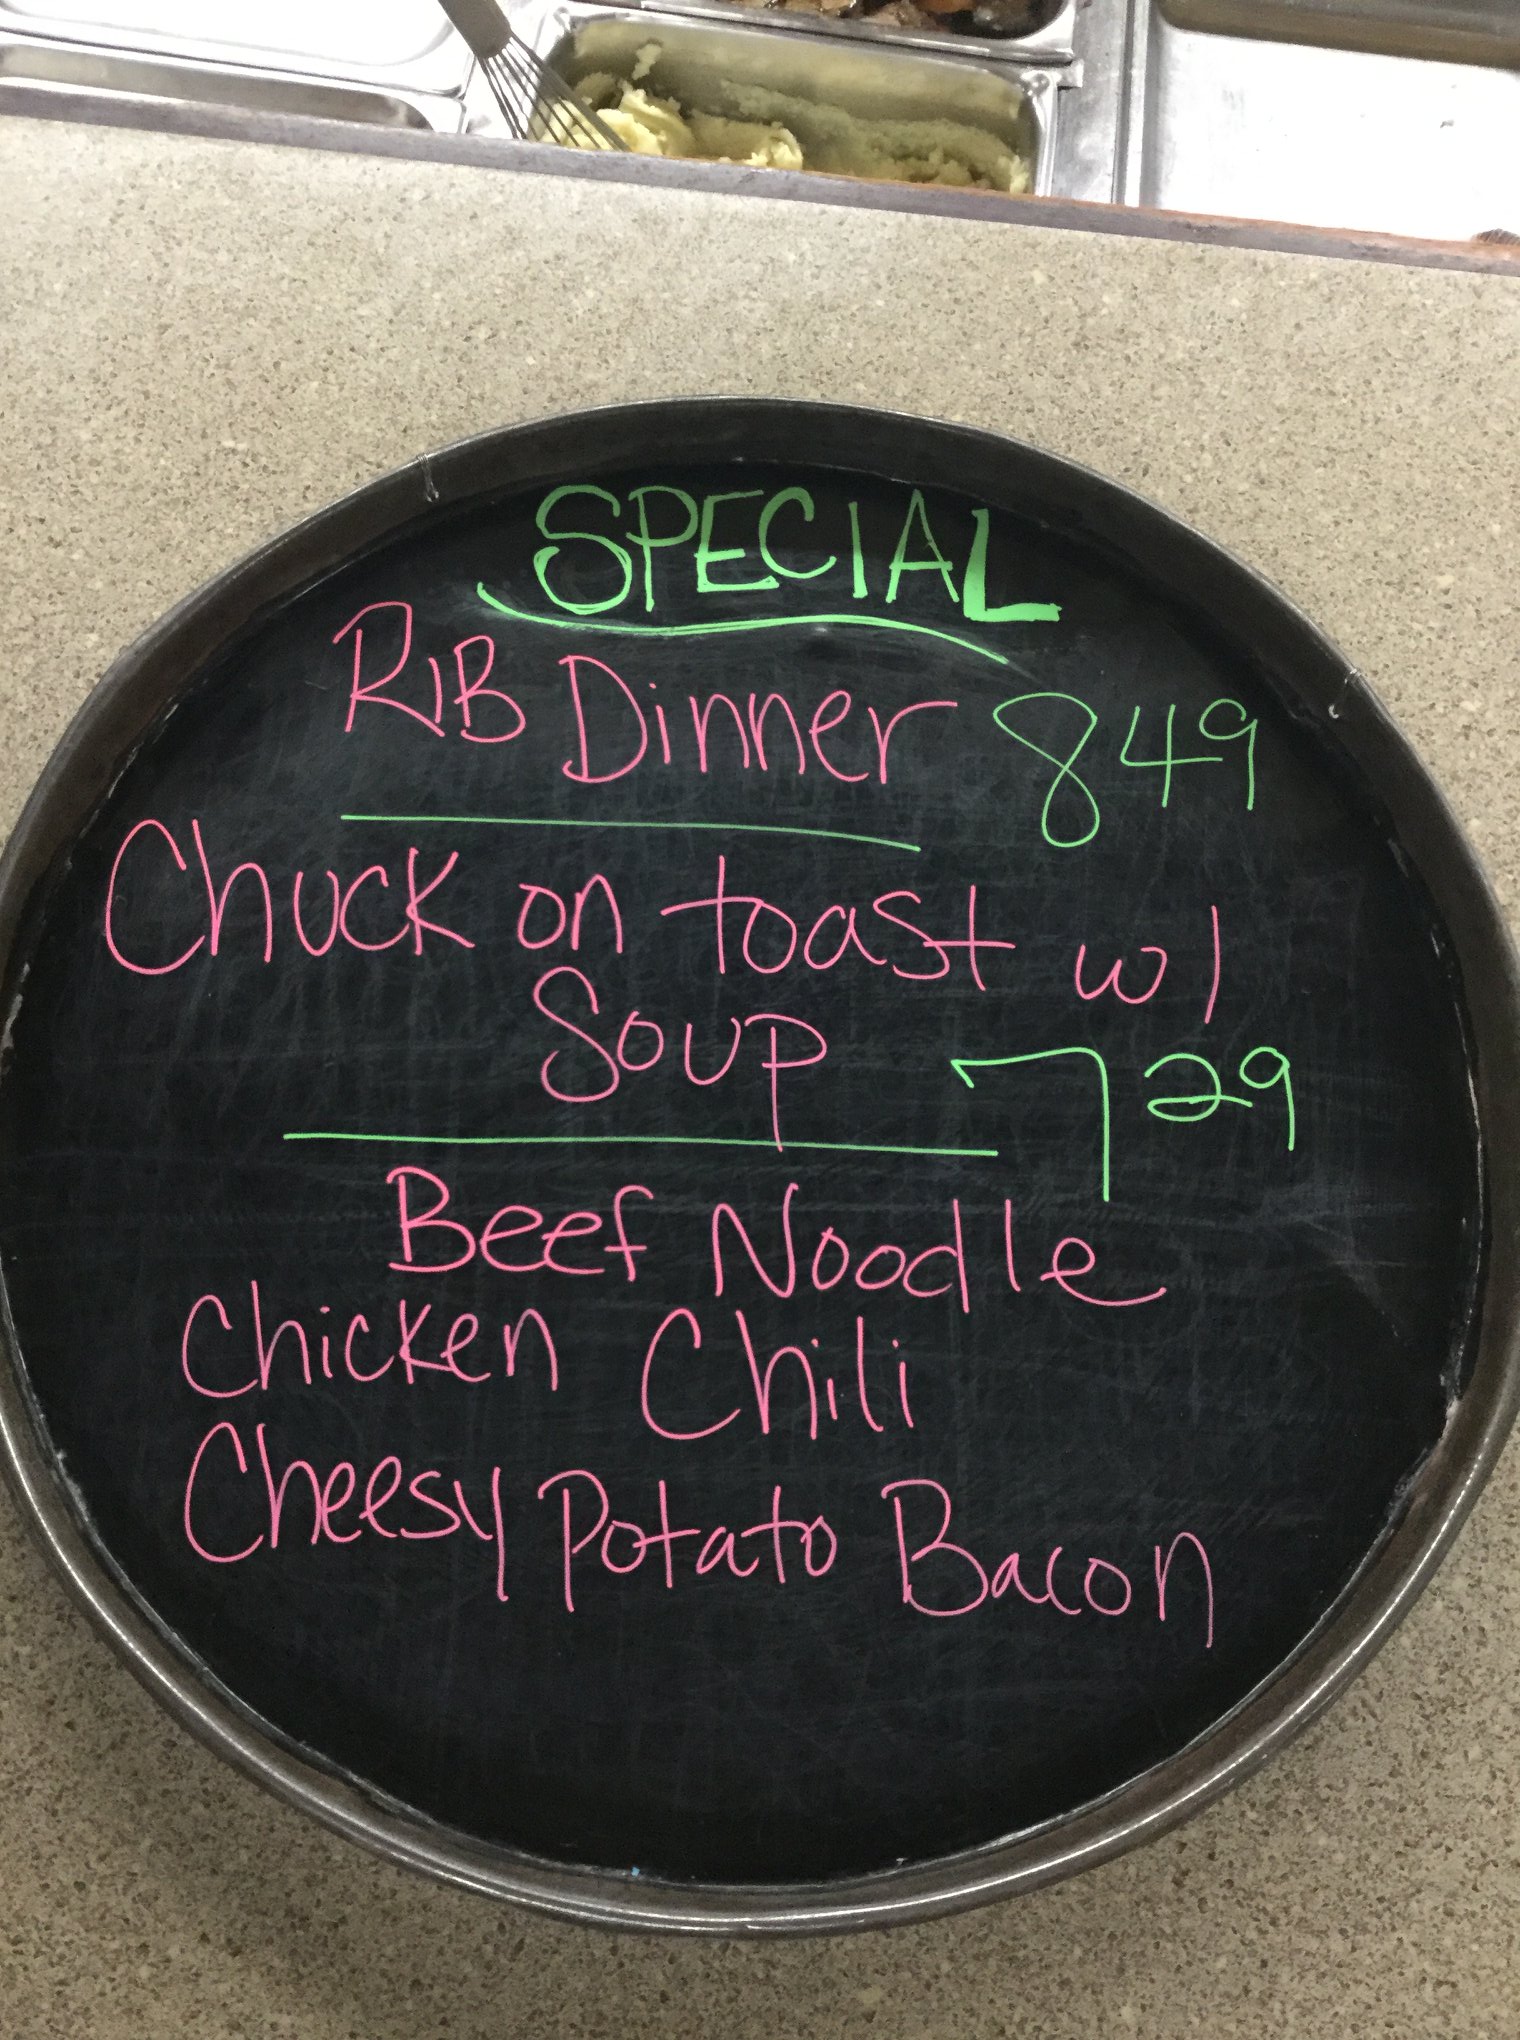 SPECIAL
RIB Dinner 849
Chuck on toast w/
Soup 729
Beef Noodle
Chicken Chili
Cheesy Potato Bacon